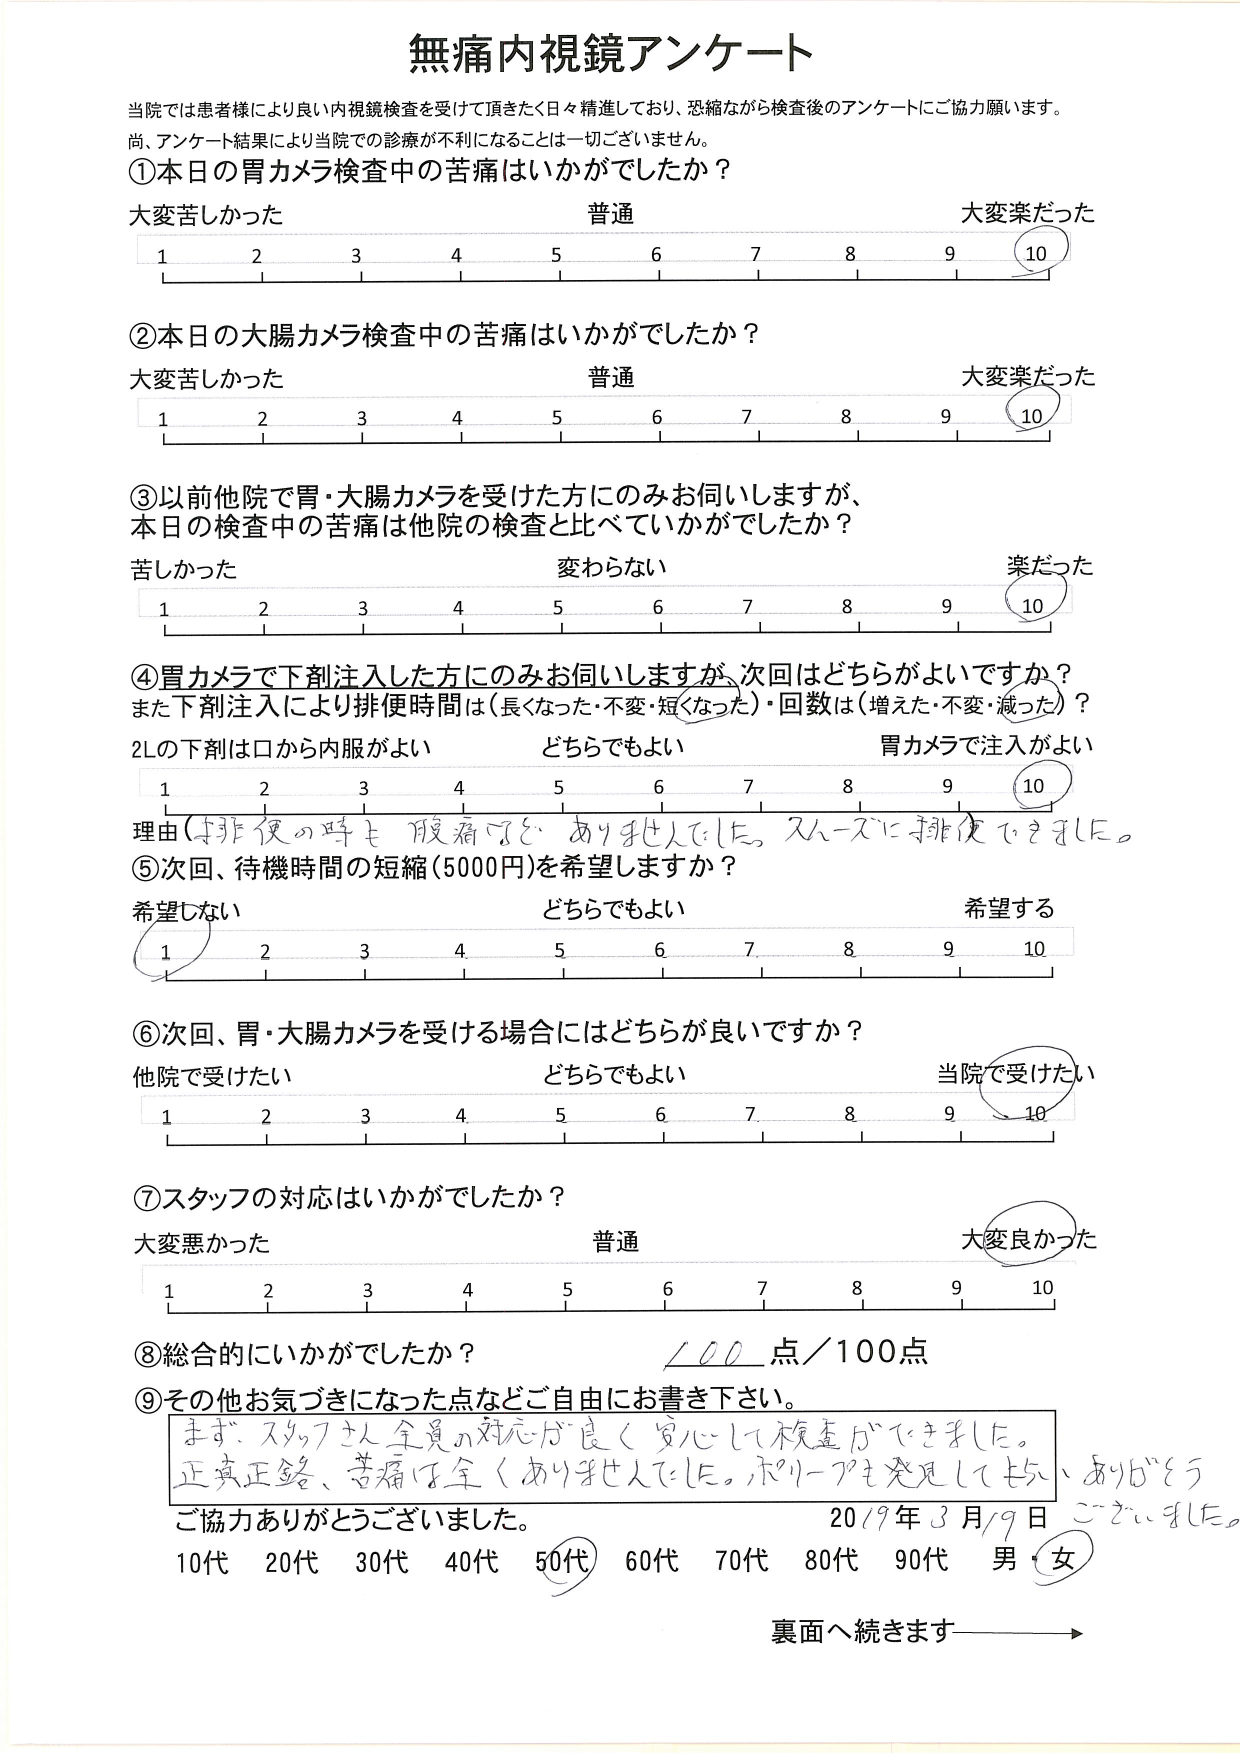 無痛内視鏡アンケート
当院では患者様により良い内視鏡検査を受けて頂きたく日々精進しており、恐縮ながら検査後のアンケートにご協力願います。
尚、アンケート結果により当院での診療が不利になることは一切ございません。
①本日の胃カメラ検査中の苦痛はいかがでしたか？
大変苦しかった 普通 大変楽だった
1 2 3 4 5 6 7 8 9 10
②本日の大腸カメラ検査中の苦痛はいかがでしたか？
大変苦しかった 普通 大変楽だった
1 2 3 4 5 6 7 8 9 10
③以前他院で胃・大腸カメラを受けた方にのみお伺いしますが、
本日の検査中の苦痛は他院の検査と比べていかがでしたか？
苦しかった 変わらない 楽だった
1 2 3 4 5 6 7 8 9 10
④胃カメラで下剤注入した方にのみお伺いしますが、次回はどちらがよいですか？
また下剤注入により排便時間は（長くなった・不変・短くなった）・回数は（増えた・不変・減った）？
2Lの下剤は口から内服がよい どちらでもよい 胃カメラで注入がよい
1 2 3 4 5 6 7 8 9 10
理由（排便の時も腹痛などありませんでした。スムーズに排便できました。）
⑤次回、待機時間の短縮（5000円）を希望しますか？
希望しない どちらでもよい 希望する
1 2 3 4 5 6 7 8 9 10
⑥次回、胃・大腸カメラを受ける場合にはどちらが良いですか？
他院で受けたい どちらでもよい 当院で受けたい
1 2 3 4 5 6 7 8 9 10
⑦スタッフの対応はいかがでしたか？
大変悪かった 普通 大変良かった
1 2 3 4 5 6 7 8 9 10
⑧総合的にいかがでしたか？ 100 点／100点
⑨その他お気づきになった点などご自由にお書き下さい。
まず、スタッフさん全員の対応が良く安心して検査ができました。
正真正銘、苦痛は全くありませんでした。ポリープも発見してもらい、ありがとう
ございました。
ご協力ありがとうございました。 2019年3月19日
10代 20代 30代 40代 50代 60代 70代 80代 90代 男・女
裏面へ続きます